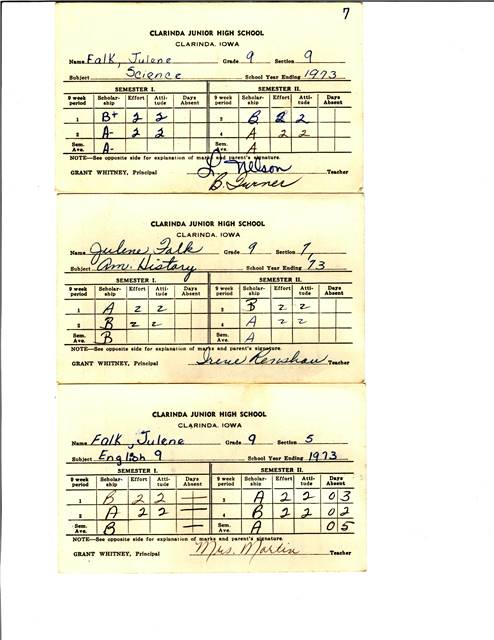 7
CLARINDA JUNIOR HIGH SCHOOL
CLARINDA, IOWA
Name Falk, Julene Grade 9 Section 9
Subject Science School Year Ending 1973
SEMESTER I. SEMESTER II.
9 week period Scholar-ship Effort Atti-tude Days Absent 9 week period Scholar-ship Effort Atti-tude Days Absent
1 B+ 2 2 3 B 2 2
2 A- 2 2 4 A 2 2
Sem. Ave. A- Sem. Ave. A
NOTE—See opposite side for explanation of marks and parent's signature.
L. Nelson
GRANT WHITNEY, Principal Teacher
B. Turner
CLARINDA JUNIOR HIGH SCHOOL
CLARINDA, IOWA
Name Julene Falk Grade 9 Section 7
Subject Am. History School Year Ending '73
SEMESTER I. SEMESTER II.
9 week period Scholar-ship Effort Atti-tude Days Absent 9 week period Scholar-ship Effort Atti-tude Days Absent
1 A 2 2 3 B 2 2
2 B 2 2 4 A 2 2
Sem. Ave. B Sem. Ave. A
NOTE—See opposite side for explanation of marks and parent's signature.
GRANT WHITNEY, Principal Irene Renshaw Teacher
CLARINDA JUNIOR HIGH SCHOOL
CLARINDA, IOWA
Name Falk, Julene Grade 9 Section 5
Subject English 9 School Year Ending 1973
SEMESTER I. SEMESTER II.
9 week period Scholar-ship Effort Atti-tude Days Absent 9 week period Scholar-ship Effort Atti-tude Days Absent
1 B 2 2 — 3 A 2 2 0 3
2 A 2 2 — 4 B 2 2 0 2
Sem. Ave. B — Sem. Ave. A 0 5
NOTE—See opposite side for explanation of marks and parent's signature.
GRANT WHITNEY, Principal Mrs. Martin Teacher